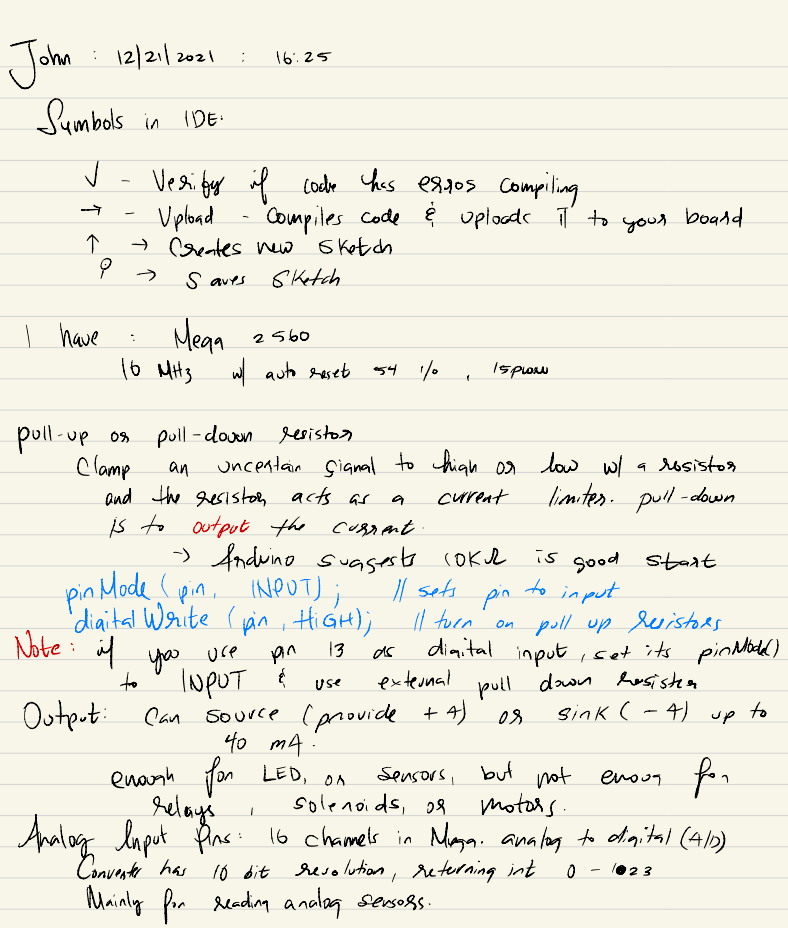 John : 12/21/2021 : 16:25
Symbols in IDE:
✓ - Verify if code has erros compiling
→ - Upload - Compiles code & uploads it to your board
↑ → Creates new Sketch
→ Saves Sketch
I have : Mega 2560
16 MHz w/ auto reset 54 i/o , 15pwm
pull-up or pull-down resistor
Clamp an uncertain signal to high or low w/ a resistor
and the resistor acts as a current limiter. pull-down
is to output the current.
→ Arduino suggests 10KΩ is good start
pinMode (pin, INPUT) ; // sets pin to input
digitalWrite (pin, HiGH); // turn on pull up resistors
Note: if you use pin 13 as digital input, set its pinMode()
to INPUT & use external pull down resister
Output: Can source (provide + 4) or sink (- 4) up to
40 mA.
enough for LED, or sensors, but not enoug for
relays, solenoids, or motors.
Analog Input Pins: 16 channels in Mega. analog to digital (A/D)
Converter has 10 bit resolution, returning int 0 - 1023
Mainly for reading analog sensors.